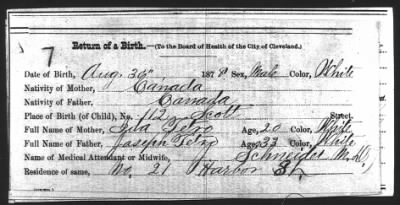 7
Return of a Birth.—(To the Board of Health of the City of Cleveland.)
Date of Birth, Aug. 1878 Sex, Male Color, White
Nativity of Mother, Canada
Nativity of Father, Canada
Place of Birth (of Child), No. 112 Scott Street.
Full Name of Mother Age, 20 Color, White
Full Name of Father, Joseph Age, 33 Color, White
Name of Medical Attendant or Midwife, Schneider M.D.
Residence of same, No. 21 Harbor St.